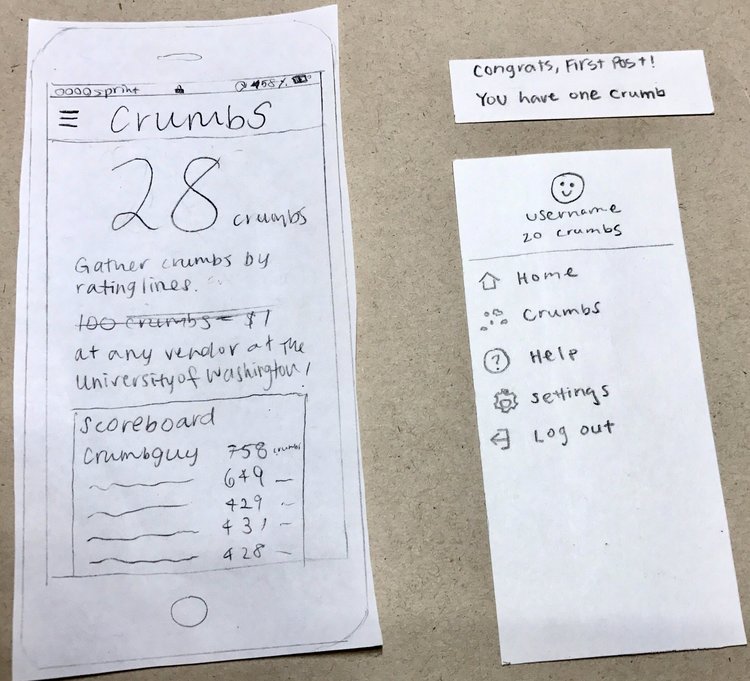 oooo sprint 58%
Crumbs
28 crumbs
Gather crumbs by
rating lines.
100 crumbs = $1
at any vendor at the
University of Washington!
Scoreboard
Crumbguy 758 crumbs
649
429
431
428
Congrats, First Post!
You have one crumb
username
20 crumbs
Home
Crumbs
? Help
settings
Log out